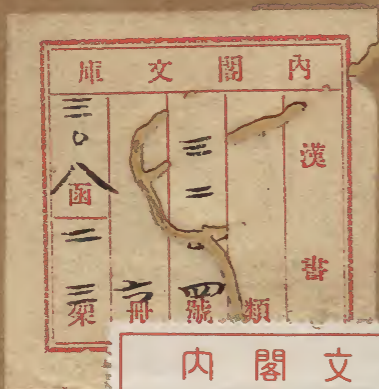 內閣文庫
漢書
類
三二四號
冊
三〇八函
二三架
內閣文